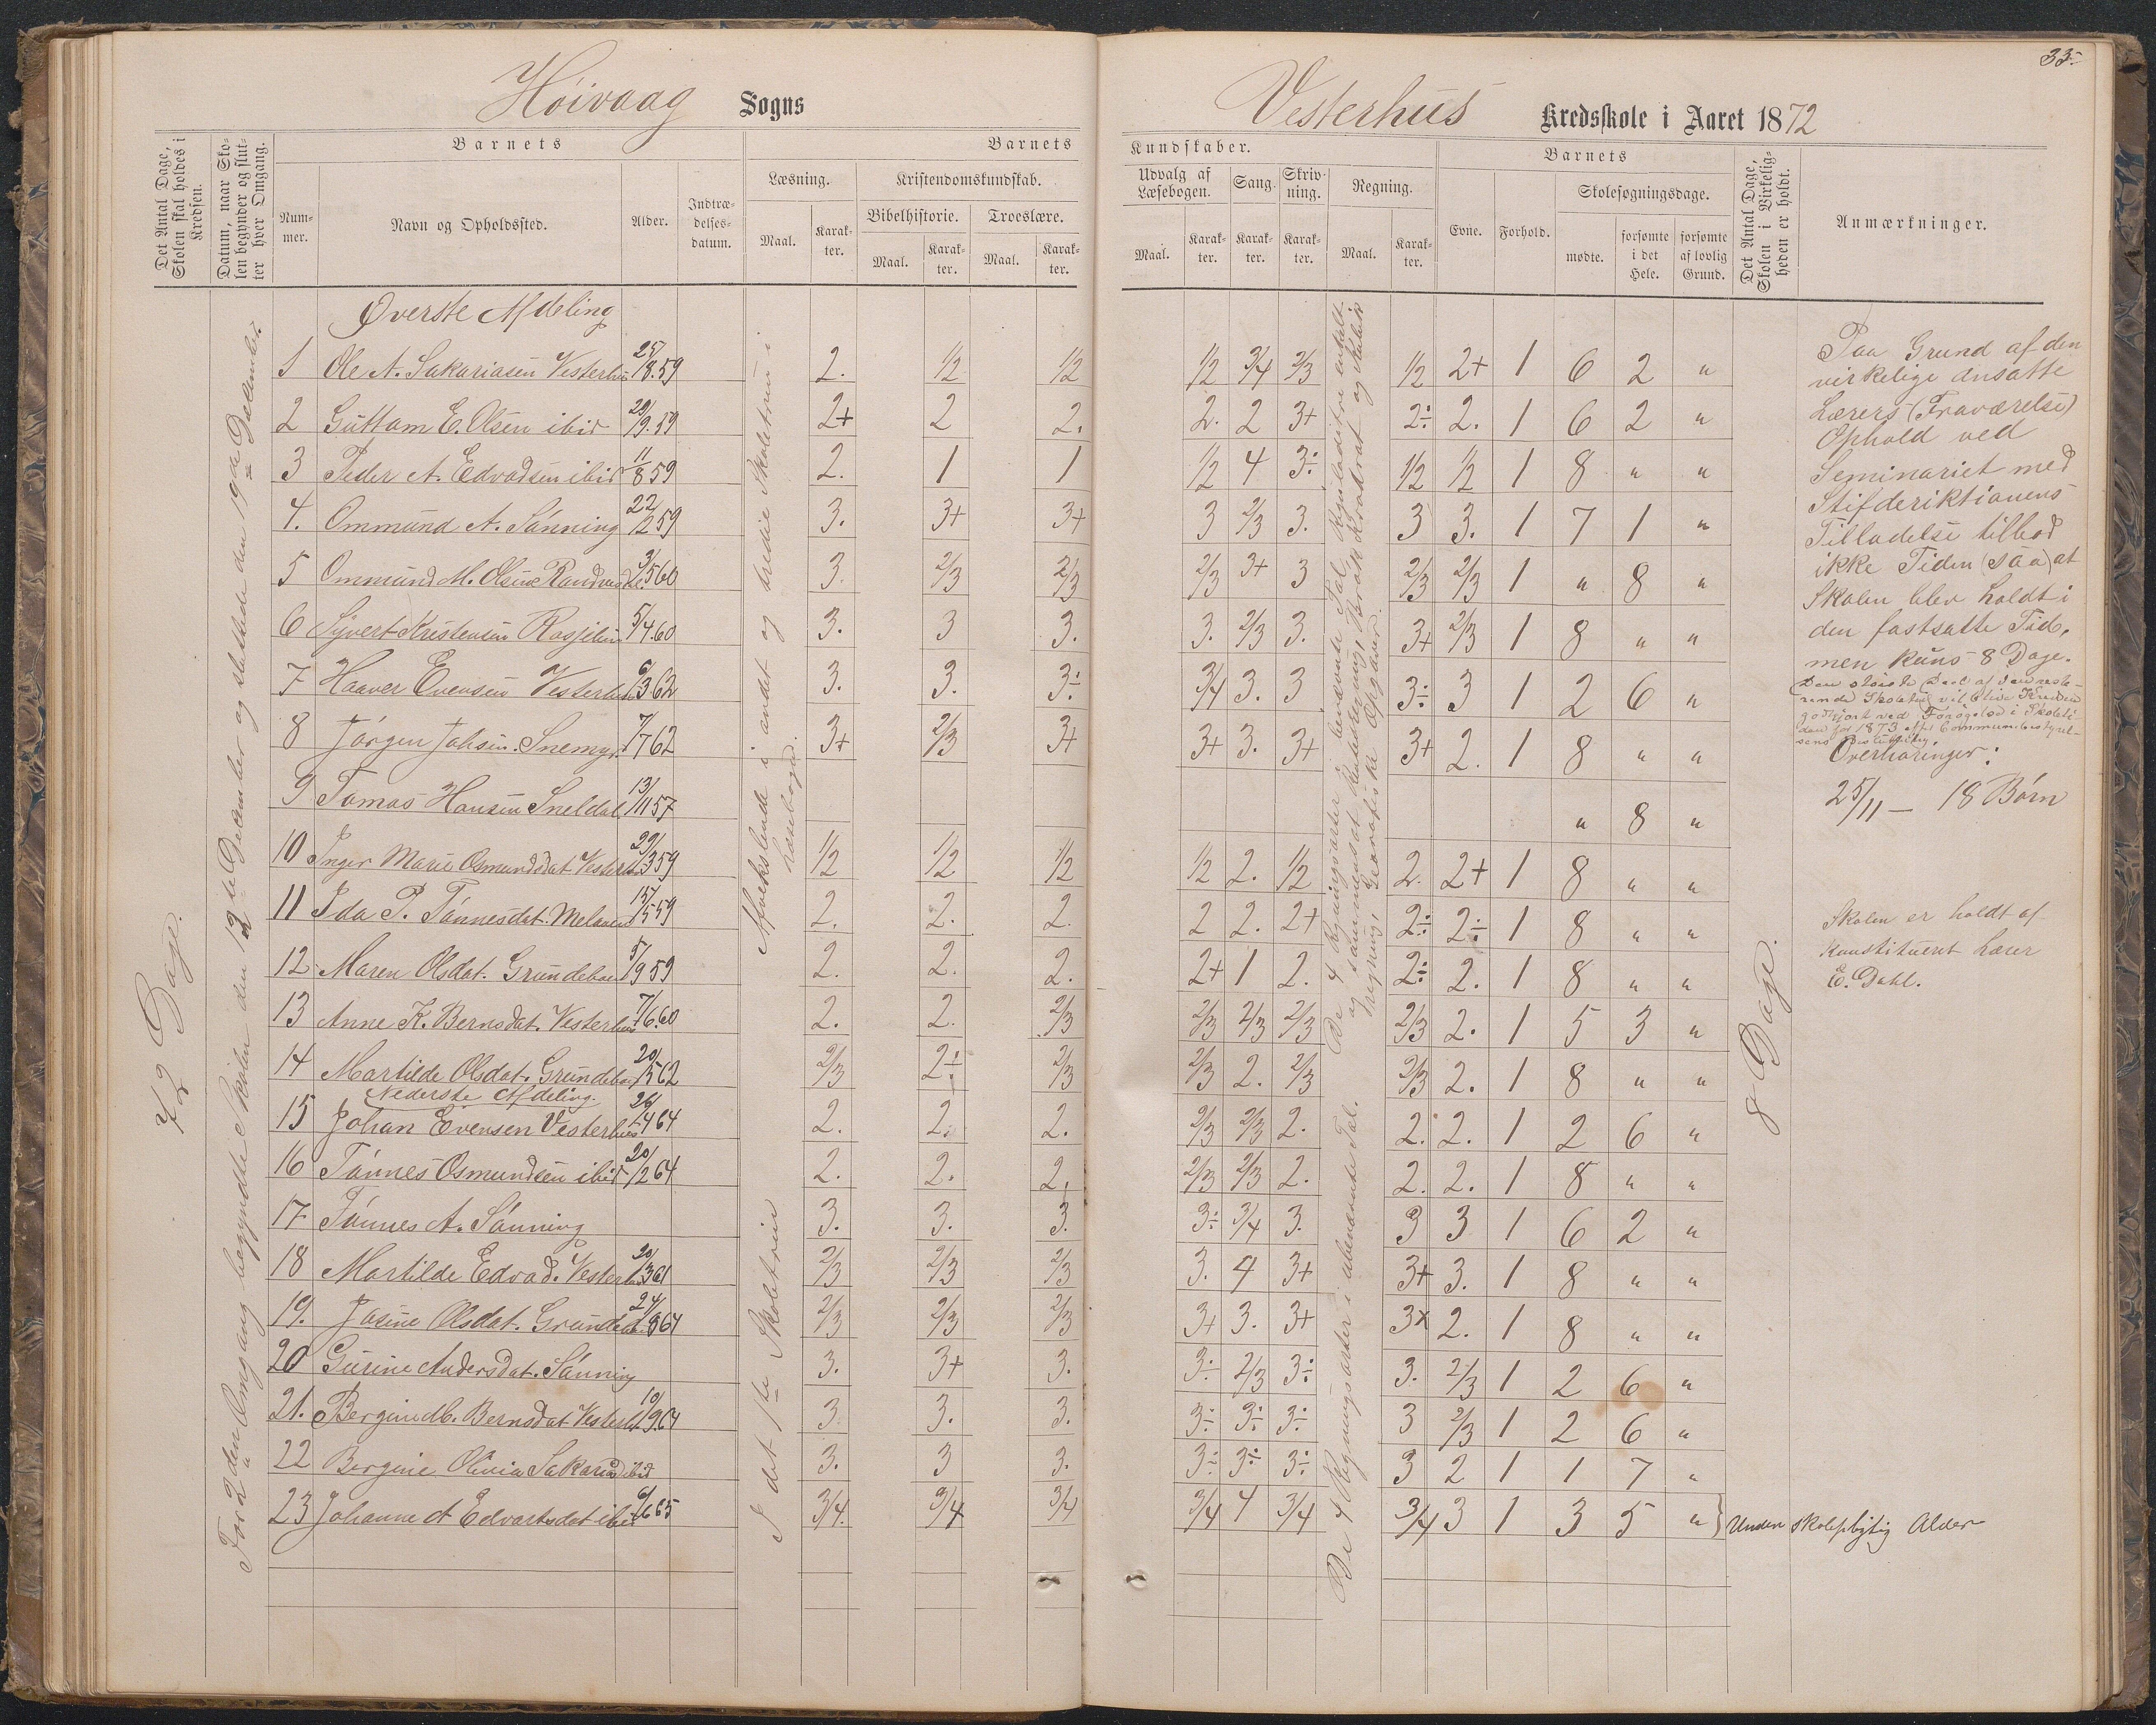 33
Høivaag Sogns
Vesterhus Kredsskole i Aaret 1872
Det Antal Dage, Skolen skal holdes i Kredsen.
Datum, naar Skolen begynder og slutter hver Omgang.
Barnets
Nummer.
Navn og Opholdssted.
Alder.
Indtrædelsesdatum.
Barnets
Læsning.
Maal.
Karakter.
Kristendomskundskab.
Bibelhistorie.
Maal.
Karakter.
Troeslære.
Maal.
Karakter.
Kundskaber.
Udvalg af Læsebogen.
Maal.
Karakter.
Sang.
Karakter.
Skrivning.
Karakter.
Regning.
Maal.
Karakter.
Barnets
Evne.
Forhold.
Skolesøgningsdage.
mødte.
forsømte i det Hele.
forsømte af lovlig Grund.
Det Antal Dage, Skolen i Virkeligheden er holdt.
Anmærkninger.
72 Dage.
For 2den Omgang begyndte Skolen den 12te December og sluttede den 19de December.
Afvekslende i andet og tredie Skoletrin i Læsebogen.
I det 1te Skoletrin
De 4 Regningsarter i ubenævnte Tal.
8 Dage.
Øverste Afdeling
1 Ole A. Sakariasen Vesterhus 25/8.59 2. 1/2 1/2 1/2 3/4 2/3 1/2 2+ 1 6 2 "
2 Guttom E. Olsen ibid 29/9.59 2+ 2 2. 2. 2 3+ 2÷ 2. 1 6 2 "
3 Peder A. Edvadsen ibid 11/8 59 2. 1 1 1/2 4 3÷ 1/2 1/2 1 8 " "
4. Ommund A. Sånning 22/2 59 3. 3+ 3+ 3 2/3 3. 3 3. 1 7 1 "
5 Ommund M. Olsen 3/5 60 3. 2/3 2/3 2/3 3+ 3 2/3 2/3 1 " 8 "
6 Syvert Kristensen 5/4.60 3. 3 3. 3. 2/3 3. 3+ 2/3 1 8 " "
7 Haaver Evensen Vesterhus 6/3 62 3. 3. 3÷ 3/4 3. 3 3÷ 3 1 2 6 "
8 Jørgen Johsen Snemyr 7/7 62 3+ 2/3 3+ 3+ 3. 3+ 3+ 2. 1 8 " "
9 Tomas Hansen Sneldal 13/11 57 " 8 "
10 Inger Marie Osmundsdat. Vesterh. 29/3 59 1/2 1/2 1/2 1/2 2. 1/2 2. 2+ 1 8 " "
11 Ida P. Tønnesdat. 15/5 59 2. 2. 2. 2 2. 2+ 2÷ 2÷ 1 8 " "
12 Maren Olsdat. Grundebu 5/9 59 2. 2. 2. 2+ 1 2. 2÷ 2. 1 8 " "
13 Anne K. Bernsdat. Vesterhus 7/6.60 2. 2. 2/3 2/3 2/3 2/3 2/3 2. 1 5 3 "
14 Martilde Olsdat. Grundebu 20/5 62 2/3 2÷ 2/3 2/3 2. 2/3 2/3 2. 1 8 " "
Nederste Afdeling.
15 Johan Evensen Vesterhus 26/4 64 2. 2. 2. 2/3 2/3 2. 2. 2. 1 2 6 "
16 Tønnes Osmundsen ibid 20/2 64 2. 2. 2. 2/3 2/3 2. 2. 2. 1 8 " "
17 Tønnes A. Sånning 3. 3. 3. 3÷ 3/4 3. 3 3 1 6 2 "
18 Martilde Edvad. Vesterhus 20/3 61 2/3 2/3 2/3 3. 4 3+ 3+ 3. 1 8 " "
19. Josine Olsdat. Grundebu 24/8 64 2/3 2/3 2/3 3+ 3. 3+ 3x 2. 1 8 " "
20 Gurine Andersdat. Sånning 3. 3+ 3. 3÷ 2/3 3÷ 3. 2/3 1 2 6 "
21. Bergine M. Bernsdat Vesterhus 10/9.64 3. 3. 3. 3÷ 3÷ 3÷ 3 2/3 1 2 6 "
22 Bergine Olivia Sakarias ibid 3. 3 3. 3÷ 3÷ 3÷ 3 2 1 1 7 "
23 Johanne A Edvartsdat ibid 6/6 65 3/4. 3/4 3/4 3/4 4 3/4 3/4 3 1 3 5 " } Under skolepligtig Alder
Paa Grund af den
virkelige ansatte
Lærers (Fraværelse)
Ophold ved
Seminariet med
Stifderiktionens
Tilladelse tillod
ikke Tiden (saa) at
Skolen blev holdt i
den fastsatte Tid,
men kuns 8 Dage.
Overhøringer:
25/11 — 18 Børn
Skolen er holdt af
Konstitueret Lærer
E. Dahl.